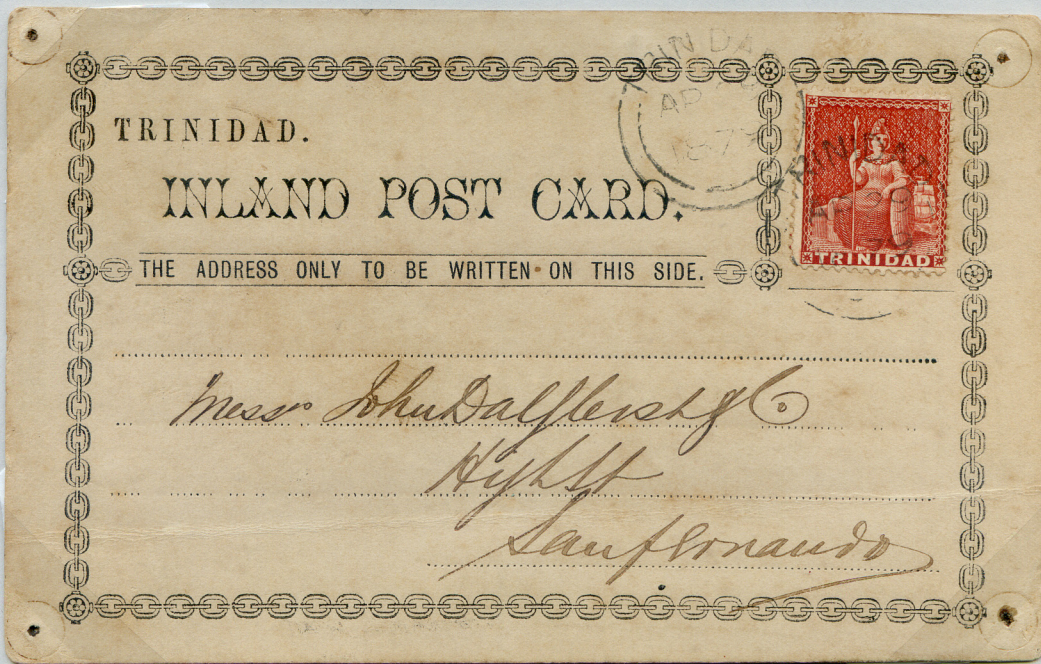 TRINIDAD.
INLAND POST CARD.
THE ADDRESS ONLY TO BE WRITTEN ON THIS SIDE.
TRINIDAD
AP
187
TRINIDAD
Messrs John & Co
High St
San fernando